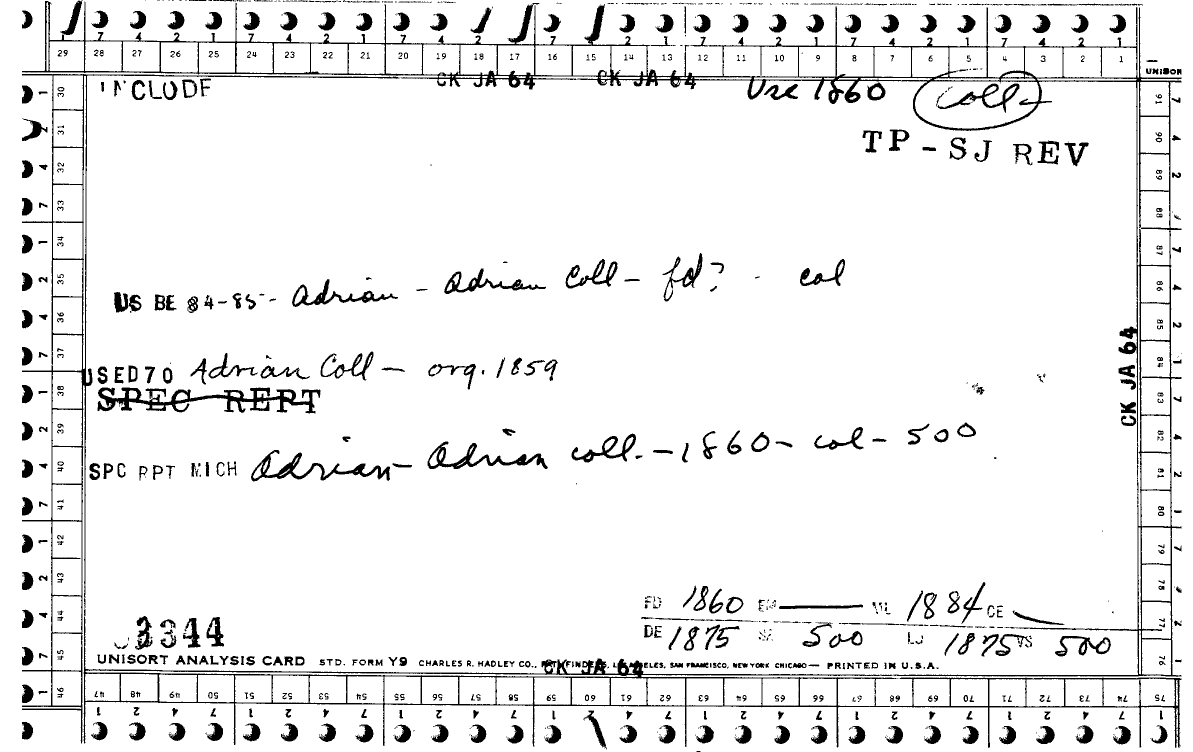 7 4 2 1 7 4 2 1 7 4 2 1 7 4 2 1 7 4 2 1 7 4 2 1
29 28 27 26 25 24 23 22 21 20 19 18 17 16 15 14 13 12 11 10 9 8 7 6 5 4 3 2 1
UNISOR
CK JA 64 CK JA 64
INCLUDE Use 1860 Coll
TP - SJ REV
US BE 84-85 - Adrian - Adrian Coll - fd? - col
USED70 Adrian Coll - org. 1859
SPEC REPT
SPC RPT MICH Adrian - Adrian coll. - 1860 - col - 500
CK JA 64
FD 1860 EM — VL 1884 CE —
DE 1875 500 LJ 1875 VS 500
3344
UNISORT ANALYSIS CARD STD. FORM Y9 CHARLES R. HADLEY CO., PATHFINDERS, LOS ANGELES, SAN FRANCISCO, NEW YORK CHICAGO — PRINTED IN U.S.A.
CK JA 64
30 31 32 33 34 35 36 37 38 39 40 41 42 43 44 45 46
91 90 89 88 87 86 85 84 83 82 81 80 79 78 77 76
47 48 49 50 51 52 53 54 55 56 57 58 59 60 61 62 63 64 65 66 67 68 69 70 71 72 73 74 75
1 2 4 7 1 2 4 7 1 2 4 7 1 2 4 7 1 2 4 7 1 2 4 7 1 2 4 7 1